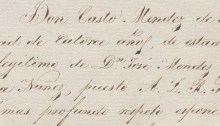 Don Casto Mendez de
de catorce años, de estad
legitimo de Dn. José Mendez
Nuñez, puesto A. L. R.
mas profundo respeto espone